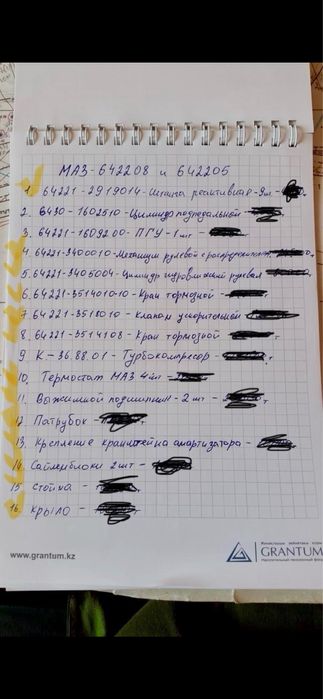 МАЗ-642208 и 642205
1. 64221-2919014-Штанга реактивная-
2. 6430-1602510-Цилиндр подпедальной-
3. 64221-1609200-ПГУ-1шт-
4. 64221-3400010-Механизм рулевой с распределителем
5. 64221-3405004-Цилиндр гидравлический рулевой
6. 64221-3514010-10-Кран тормозной-
7. 64221-3518010-Клапан ускорительный
8. 64221-3514108-Кран тормозной-
9 К-36.88.01-Турбокомпрессор-
10. Термостат МАЗ 4шт-
11. Выжимной подшипник-2шт-
12. Патрубок-
13. Крепление кранштейна амартизатора-
14. Сайлерблоки 2шт-
15 стойка-
16. крыло-
www.grantum.kz
GRANTUM